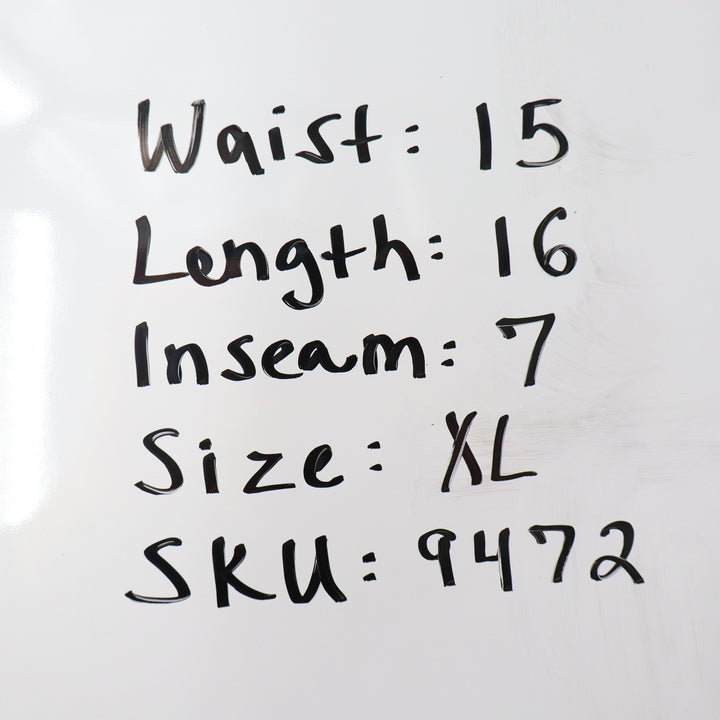 Waist: 15
Length: 16
Inseam: 7
Size: XL
SKU: 9472